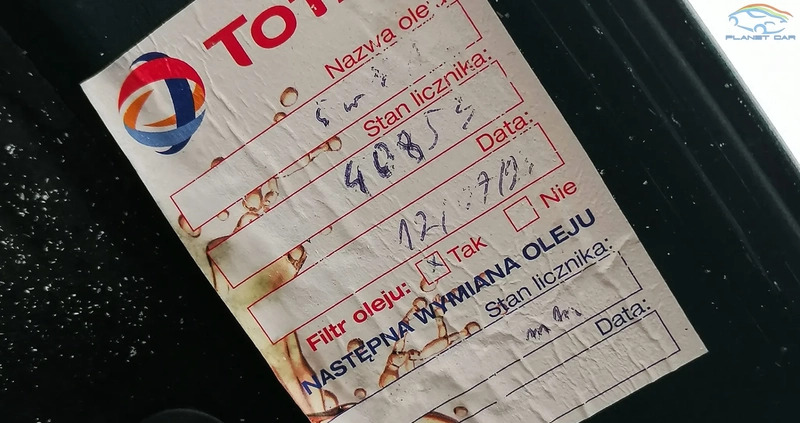 PLANET CAR
TOTA
Nazwa ole
5w
Stan licznika:
40855
Data:
12
Filtr oleju: x Tak Nie
NASTĘPNA WYMIANA OLEJU
Stan licznika:
Data: